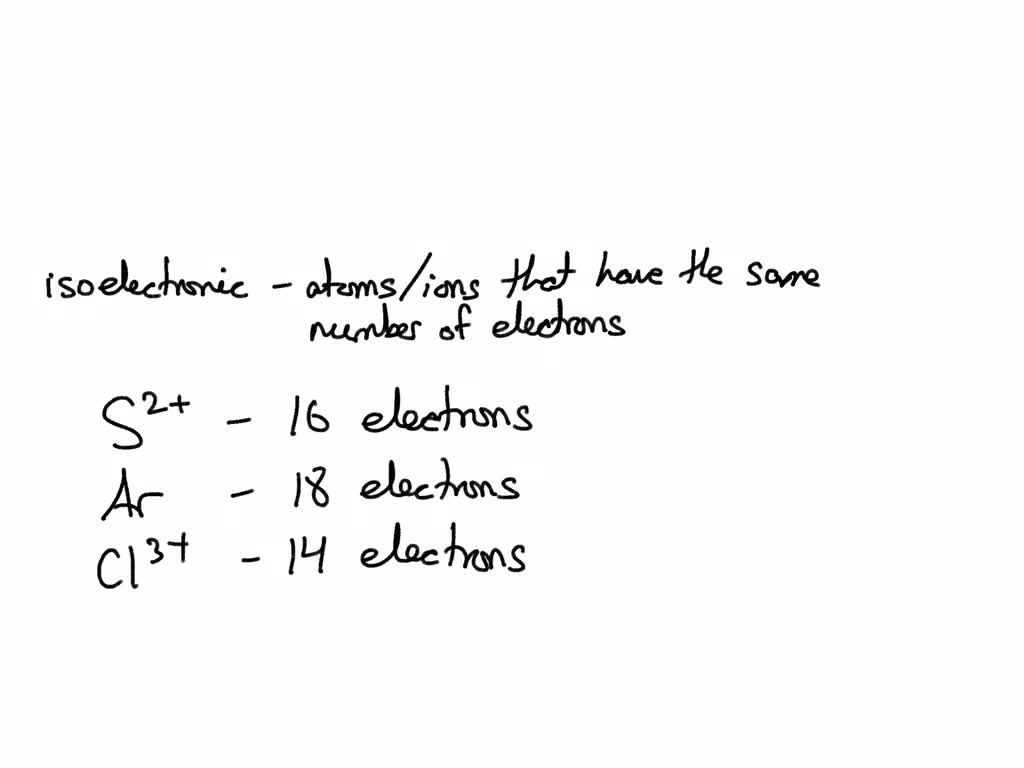 isoelectronic - atoms/ions that have the same
number of electrons
S²⁺ - 16 electrons
Ar - 18 electrons
Cl³⁺ - 14 electrons